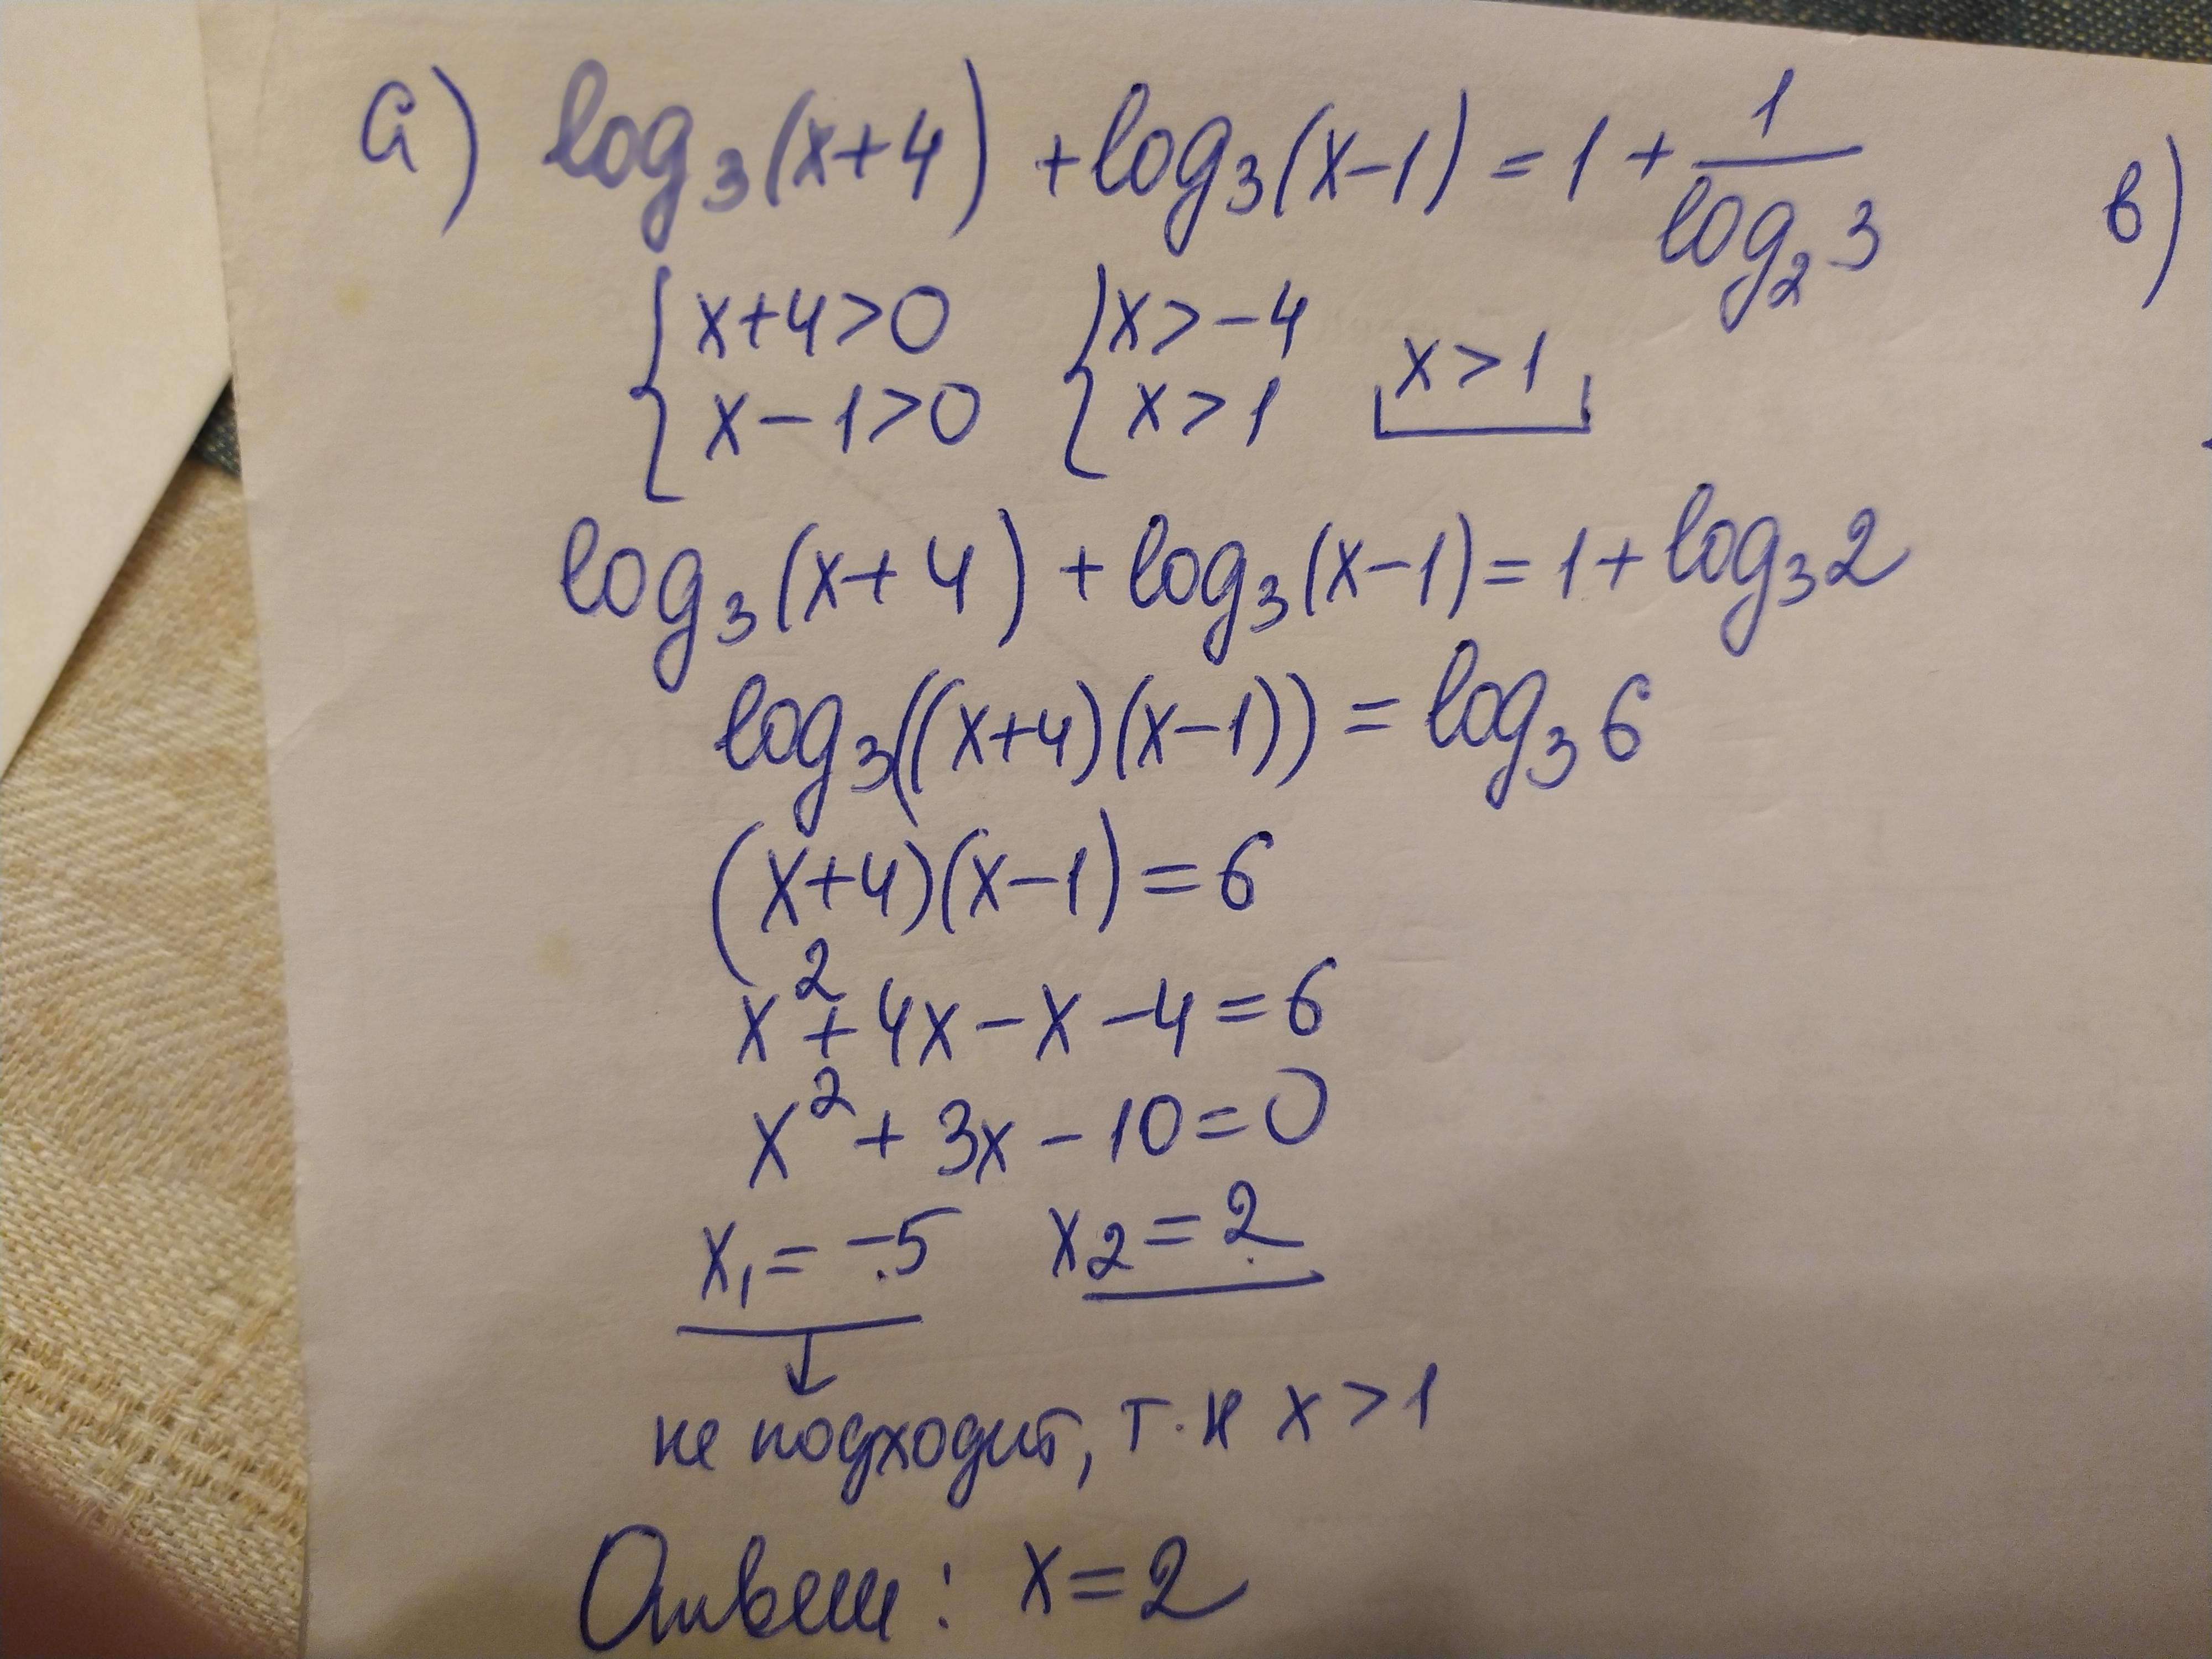 а) log₃(x+4) + log₃(x-1) = 1 + 1/log₂3
в)
{x+4>0 {x>-4
x-1>0 x>1 x>1
log₃(x+4) + log₃(x-1) = 1 + log₃2
log₃((x+4)(x-1)) = log₃6
(x+4)(x-1) = 6
x²+4x-x-4=6
x²+3x-10=0
x₁=-5 x₂=2
не подходит, т.к x>1
Ответ: x=2